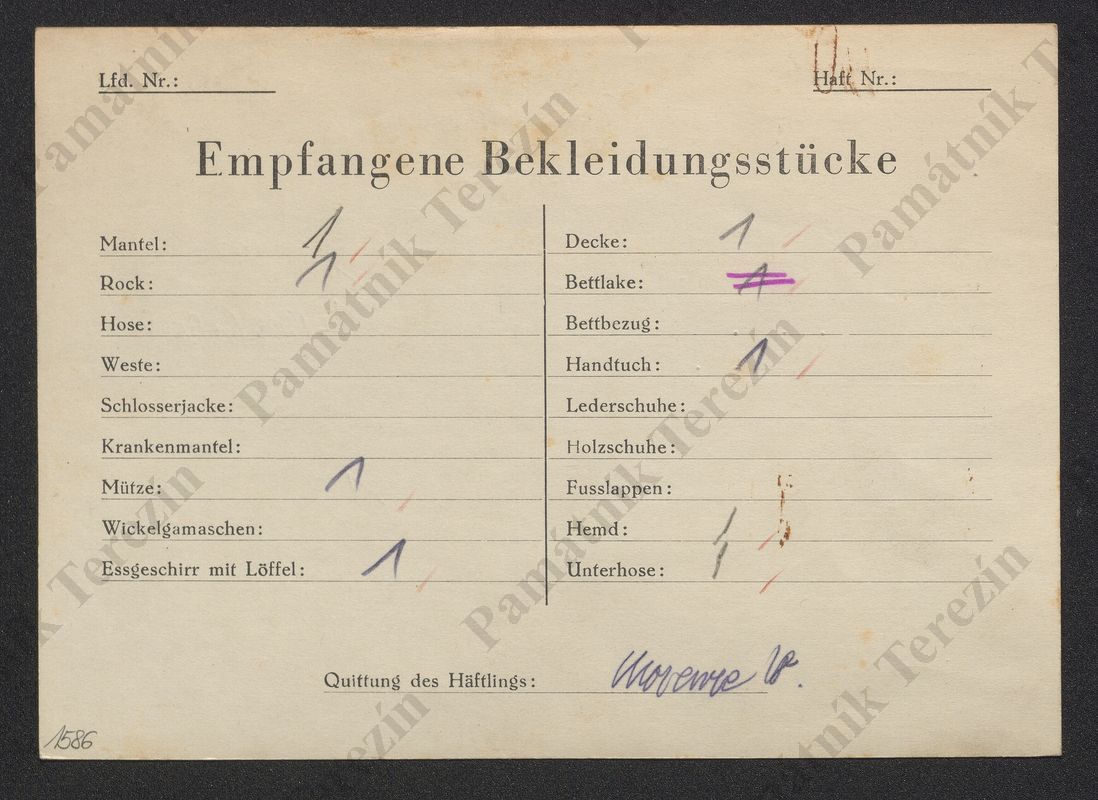 Lfd. Nr.:
Haft Nr.:
Empfangene Bekleidungsstücke
Mantel: 1
Rock: 1
Hose:
Weste:
Schlosserjacke:
Krankenmantel:
Mütze: 1
Wickelgamaschen:
Essgeschirr mit Löffel: 1
Decke: 1
Bettlake: 1
Bettbezug:
Handtuch: 1
Lederschuhe:
Holzschuhe:
Fusslappen:
Hemd: 1
Unterhose: 1
Quittung des Häftlings:
1586
Památník Terezín